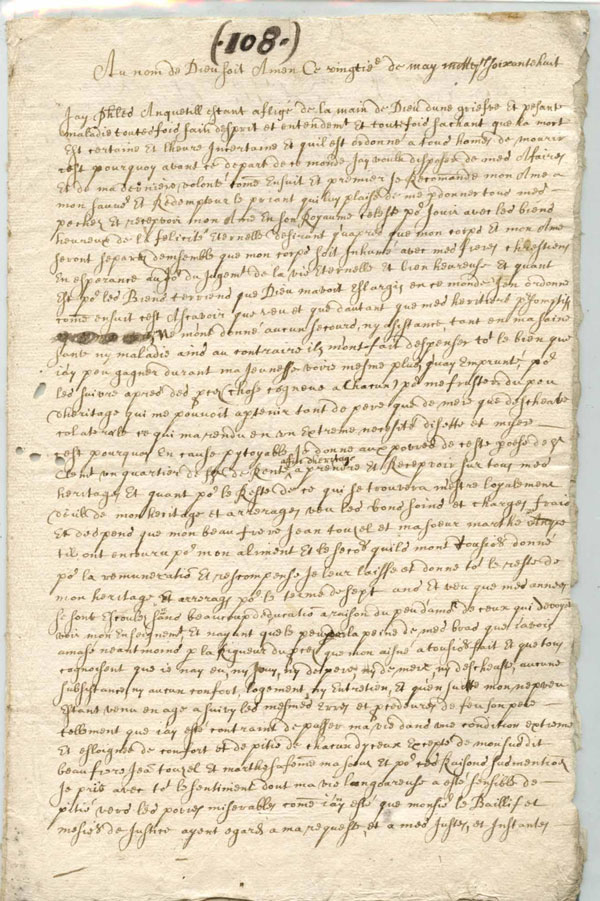 (108.)
Au nom de Dieu soit Amen Ce vingtie de may soixante huit
Jay Anquetill estant afligé de la main de Dieu dune griefve et pesant
maladie toutesfois sain desprit et entendemt et toutefois sachant que la mort
est certaine et lheure incertaine et quil est ordonné a tous homes de mourir
cest pourquoy avant ce depart de ce monde Jay voulu disposer de mes afaires
et de ma derniere volonté come ensuit et premier je Recomande mon Ame a
mon sauvr et Redempteur le priant quil luy plaise de me pdonner tous mes
pechez et recepvoir mon Ame en son Royaume celeste pr Jouir avec les biens
heureux de la felicité Eternelle desirant quapres que mon corps et mon Ame
seront separez densemble que mon corps soit inhumé avec mes freres chrestiens
en esperance au Jor du Jugemt de la vie Eternelle et bien heureuse et quant
est pr les Biens terriens que Dieu mavoit eslargis en ce monde Jen ordonne
come ensuit cest Ascavoir que veu et que dautant que mes heritiers
ne mont donné aucun secours ny assistance tant en ma saine
santé ny maladie ains au contraire ils mont fait despenser tot le bien que
iay peu gagner durant ma Jeunesse voire mesme plus quay Emprunté pr
les suivre apres des pces (chose cogneue a chacun) pr me frustrer du peu
dheritage qui me pouvoit aptenir tant de pere que de mere que descheate
colaterale ce qui ma rendu en un extreme necessité disette et misere
cest pourquoy en cause pytoyable Je donne aux povres de ceste poesse de St
Clemt un quartier de de Rente a prendre et Recepvoir sur tous mes
heritages et quant pr le Reste de ce qui se trouvera mestre loyalement
deub de mon heritage et arrerages veu les bons soins et charges frais
et despens que mon beau frere Jean touzel et ma soeur marthe
til ont encouru pr mon aliment et le secors quils mont tousiors donné
pr la remuneration et rescompense Je leur laisse et donne tot le reste de
mon heritage et arrerags pr le terme de sept ans et veu que mes années
se sont Escoulez sans beaucoup deducation a raison du peu damor de ceux qui devoyt
voir mon Enseignemt et nayant que le peu de la peine de mes bras que iavois
amassé neantmoins p la rigueur du pces que mon aisné a tousiors fait et que tous
cognoissent que ie nay eu, ny Jouy, ny de pere, ny de mere, ny descheute, aucune
subsistance, ny aucun confort, logement, ny Entretien, et quen suitte mon nepveu
estant venu en age a suivy les mesmes Erres et pcedures de feu son pere
tellement que iay esté contraint de passer ma vie dans une condition extreme
et esloignée de confort et de pitié de chacun dyceux Excepté de mon susdit
beau frere Jean touzel et marthe sa fème ma soeur et pr ces Raisons susmention
Je prie avec tot le sentiment dont ma vie langoureuse a esté sensible de
pitié vers les povres miserables come iay esté que monsr le Baillif et
mesrs de Justice ayent egard a ma requeste, et a mes Justes, et Instantes